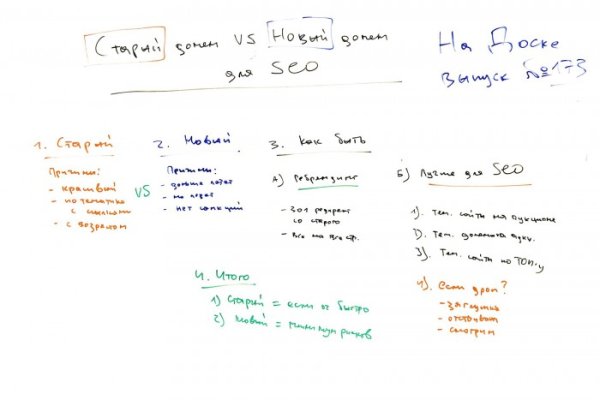 Старый домен VS Новый домен
для SEO
На Доске
выпуск №173
1. Старый
Причины:
- красивый
- по тематике
с ссылками
- с возрастом
VS
2. Новый
Причины:
- дольше
- на
- нет санкций
3. Как быть
А) Ребрендинг
- 301 редирект
со старого
- Все на все стр.
Б) Лучше для SEO
1). Тем. сайты на аукционе
2). Тем. домена аукц.
3). Тем. сайты по ТОП-у
4). Если дроп?
- заглушка
- отстоялся
- смотрим
4. Итого
1) Старый = если ок быстро
2) Новый = минимум рисков